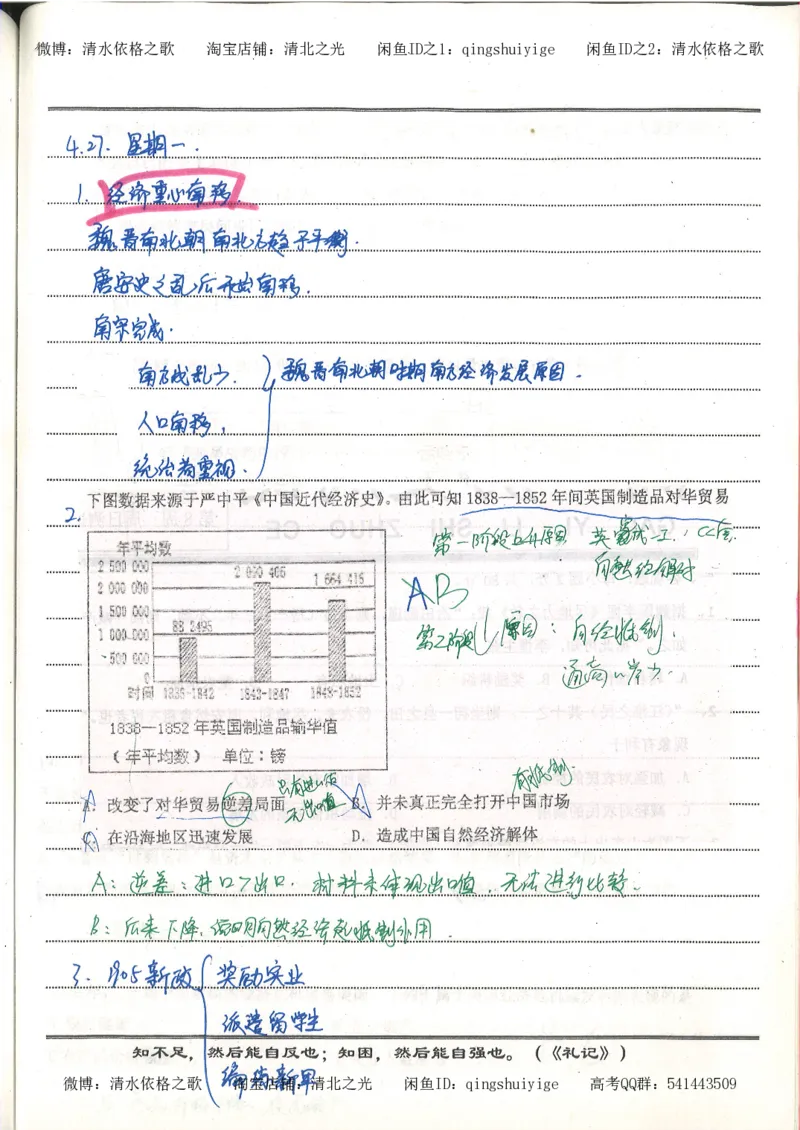 微博：清水依格之歌 淘宝店铺：清北之光 闲鱼ID之1：qingshuiyige 闲鱼ID之2：清水依格之歌
4.27. 星期一.
1. 经济重心南移.
魏晋南北朝南北方趋于平衡.
唐安史之乱后开始南移.
南宋完成.
南方战乱少. 魏晋南北朝时期南方经济发展原因.
人口南移，
统治者重视.
2. 下图数据来源于严中平《中国近代经济史》。由此可知1838—1852年间英国制造品对华贸易
年平均数
2 500 000
2 000 000
1 500 000
1 000 000
500 000
0
88 2495
2 090 405
1 664 416
时间 1838-1842 1843-1847 1848-1852
1838—1852年英国制造品输华值
（年平均数） 单位：镑
第一阶段上升原因 英
自然经解体
AB
第二阶段 原因：自经抵制.
通商口岸少.
A. 改变了对华贸易逆差局面
只有进口值
无出口值
B. 并未真正完全打开中国市场
有抵制.
C. 在沿海地区迅速发展 D. 造成中国自然经济解体
A：逆差：进口>出口. 材料未体现出口值，无法进行比较.
B：后来下降，说明自然经济起抵制作用.
3. 1905新政 奖励实业
派遣留学生
编练新军
知不足，然后能自反也；知困，然后能自强也。（《礼记》）
微博：清水依格之歌 淘宝店铺：清北之光 闲鱼ID：qingshuiyige 高考QQ群：541443509